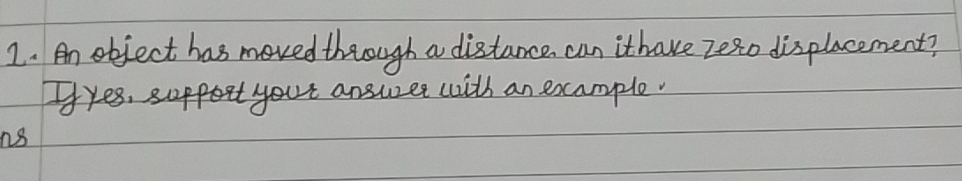 1. An object has moved through a distance. can it have zero displacement?
If yes, support your answer with an example.
ns